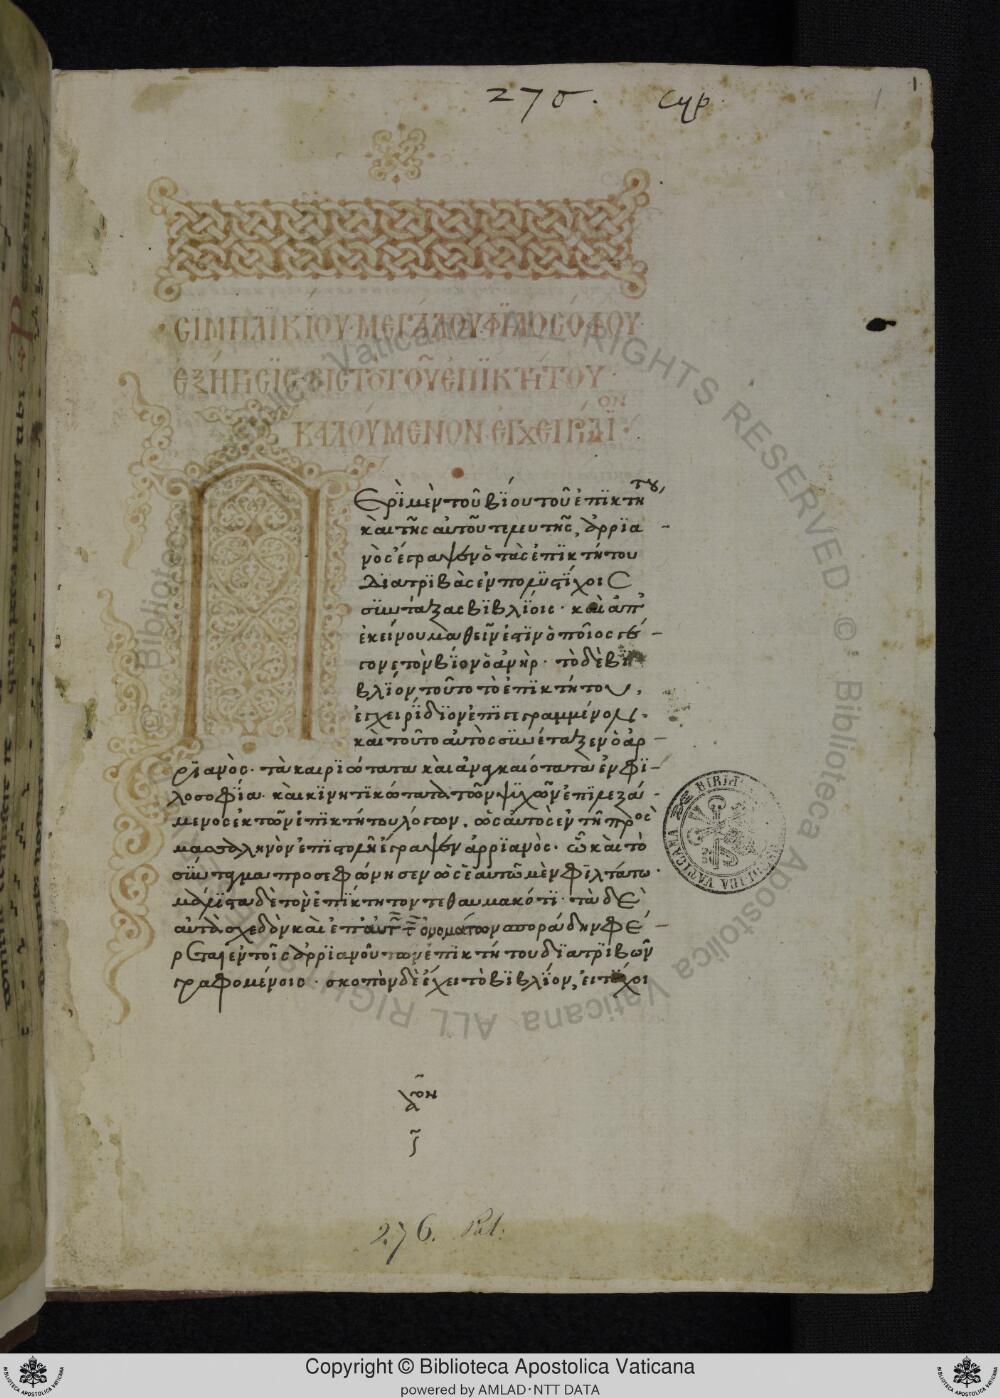 270. Cyp
1
1
σιμπλικίου· μεγάλου φϊλοσόφου·
ἐξήγησϊς· εἰς τὸ τοῦ ἐπϊκτήτου·
καλούμενον· ἐγχειρίδϊον·
Περὶ μὲν τοῦ βίου τοῦ ἐπϊκτήτου,
καὶ τῆς αὐτοῦ τελευτῆς, ἀρρϊα
νὸς ἔγραψεν ὁ τὰς ἐπϊκτήτου
διατρϊβὰς ἐν πολυστίχοις
συντάξας βϊβλίοις· καὶ ἀπ'
ἐκείνου μαθεῖν ἔστϊν ὁποῖος γέ
γονε τὸν βίον ὁ ἀνήρ· τὸ δὲ βϊ
βλίον τοῦτο τὸ ἐπϊκτήτου,
ἐγχειρίδϊον ἐπϊγεγραμμένον·
καὶ τοῦτο αὐτὸς συνέταξεν ὁ ἀρ
ρϊανὸς· τὰ καιρϊώτατα καὶ ἀναγκαιότατα ἐν φϊ
λοσοφία· καὶ κϊνητικώτατα τῶν ψϋχῶν ἐπϊλεξά
μενος ἐκ τῶν ἐπϊκτήτου λόγων, ὡς αὐτὸς ἐν τῇ πρὸς
μασσαληνὸν ἐπϊστολῇ ἔγραψεν ἀρρϊανὸς· ὧ καὶ τὸ
σύνταγμα προσεφώνησεν ὡς ἑαυτῶ μὲν φϊλτάτω·
μάλϊστα δὲ τὸν ἐπίκτητον τεθαυμακότϊ· τὰ δὲ
αὐτὰ σχεδὸν καὶ ἐπ' αὐτῶν τῶν ὀνομάτων σποράδην φέ
ρεται ἐν τοῖς ἀρρϊανοῦ τῶν ἐπϊκτήτου δϊατρϊβῶν
γραφομένοις· σκοπὸν δὲ ἔχει τὸ βϊβλίον, εἰ τύχοι
276. Pal.
BIBLIOTECA APOSTOLICA VATICANA
© Biblioteca Apostolica Vaticana ALL RIGHTS RESERVED
Copyright © Biblioteca Apostolica Vaticana
powered by AMLAD·NTT DATA